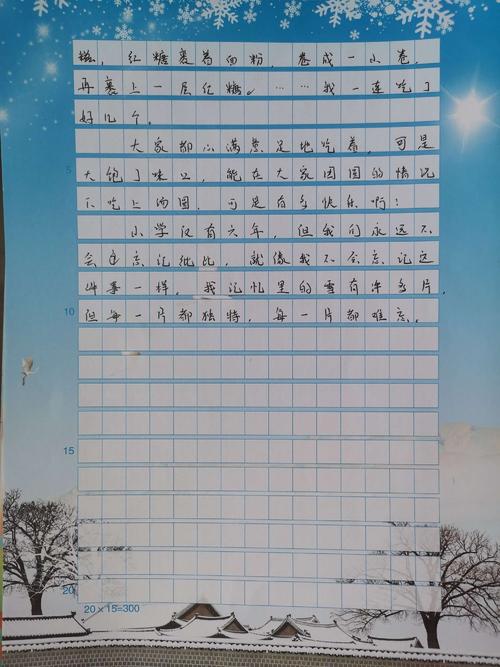 糍，红糖裹着面粉，卷成一小卷，
再裹上一层红糖。……我一连吃了
好几个。
大家都心满意足地吃着，可是
大饱了味口，能在大家团圆的情况
下吃上汤圆，可是有多快乐啊！
小学仅有六年，但我们永远不
会忘记彼此，就像我不会忘记这
件事一样。我记忆里的雪有许多片，
但每一片都独特，每一片都难忘。
5
10
15
20
20×15=300